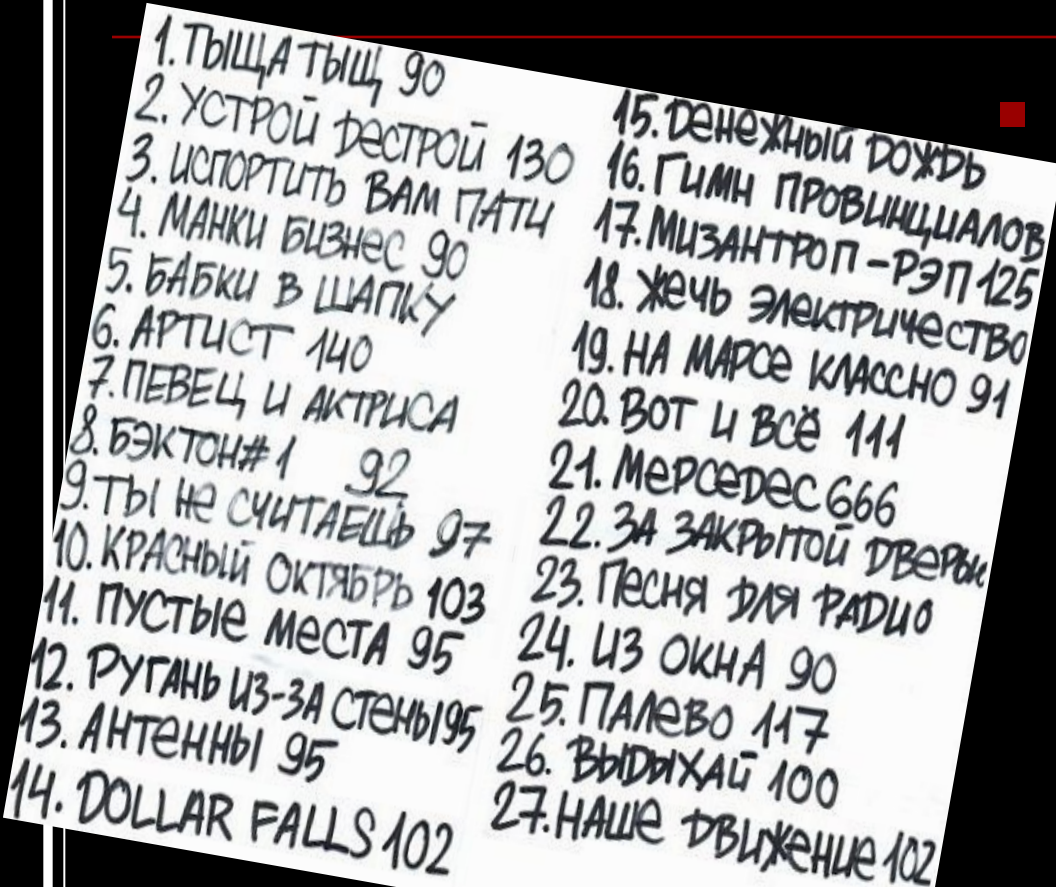 1. ТЫЩА ТЫЩ 90
2. УСТРОЙ ДЕСТРОЙ 130
3. ИСПОРТИТЬ ВАМ ПАТИ
4. МАНКИ БИЗНЕС 90
5. БАБКИ В ШАПКУ
6. АРТИСТ 140
7. ПЕВЕЦ И АКТРИСА
8. БЭКТОН#1 92
9. ТЫ НЕ СЧИТАЕШЬ 97
10. КРАСНЫЙ ОКТЯБРЬ 103
11. ПУСТЫЕ МЕСТА 95
12. РУГАНЬ ИЗ-ЗА СТЕНЫ 95
13. АНТЕННЫ 95
14. DOLLAR FALLS 102
15. ДЕНЕЖНЫЙ ДОЖДЬ
16. ГИМН ПРОВИНЦИАЛОВ
17. МИЗАНТРОП-РЭП 125
18. ЖЕЧЬ ЭЛЕКТРИЧЕСТВО
19. НА МАРСЕ КЛАССНО 91
20. ВОТ И ВСЁ 111
21. МЕРСЕДЕС 666
22. ЗА ЗАКРЫТОЙ ДВЕРЬЮ
23. ПЕСНЯ ДЛЯ РАДИО
24. ИЗ ОКНА 90
25. ПАЛЕВО 117
26. ВЫДЫХАЙ 100
27. НАШЕ ДВИЖЕНИЕ 102